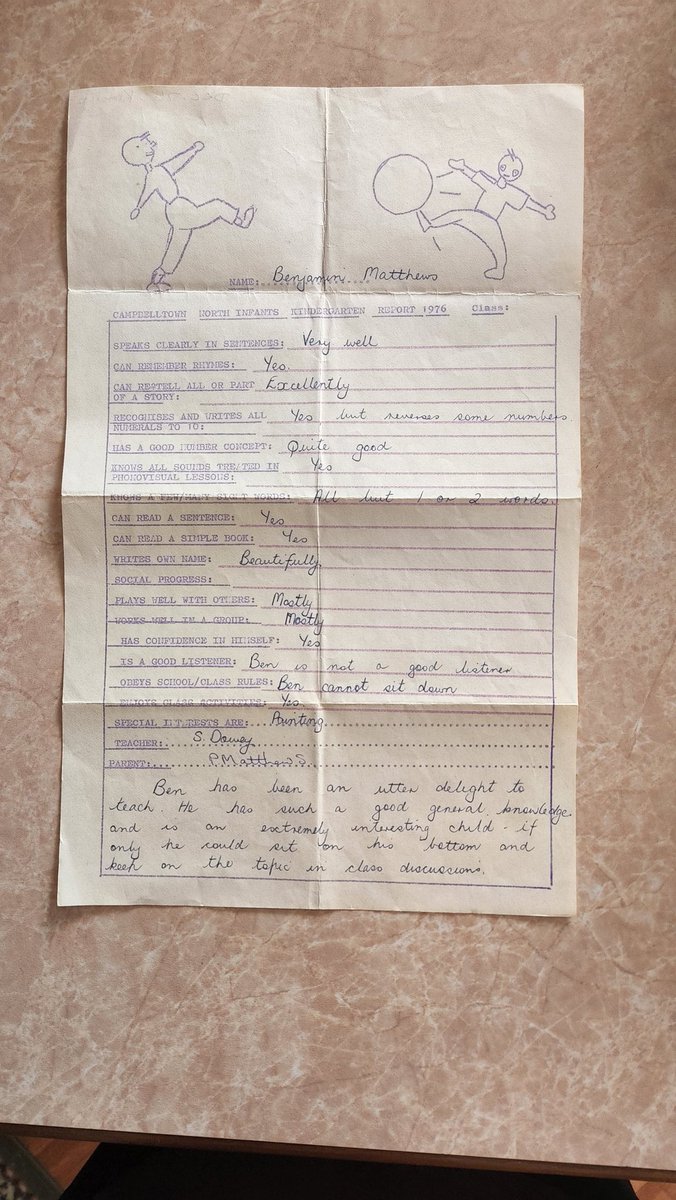 NAME: Benjamin Matthews
CAMPBELLTOWN NORTH INFANTS KINDERGARTEN REPORT 1976 Class:
SPEAKS CLEARLY IN SENTENCES: Very well
CAN REMEMBER RHYMES: Yes.
CAN RETELL ALL OR PART Excellently
OF A STORY:
RECOGNISES AND WRITES ALL Yes but reverses some numbers
NUMERALS TO 10:
HAS A GOOD NUMBER CONCEPT: Quite good
KNOWS ALL SOUNDS TREATED IN Yes
PHONOVISUAL LESSONS:
KNOWS A FEW/MANY SIGHT WORDS: All but 1 or 2 words.
CAN READ A SENTENCE: Yes
CAN READ A SIMPLE BOOK: Yes
WRITES OWN NAME: Beautifully.
SOCIAL PROGRESS:
PLAYS WELL WITH OTHERS: Mostly
WORKS WELL IN A GROUP: Mostly
HAS CONFIDENCE IN HIMSELF: Yes
IS A GOOD LISTENER: Ben is not a good listener
OBEYS SCHOOL/CLASS RULES: Ben cannot sit down
ENJOYS CLASS ACTIVITIES: Yes.
SPECIAL INTERESTS ARE: Painting.
TEACHER: S. Dowey
PARENT: P Matthews.
Ben has been an utter delight to
teach. He has such a good general knowledge
and is an extremely interesting child - if
only he could sit on his bottom and
keep on the topic in class discussions.